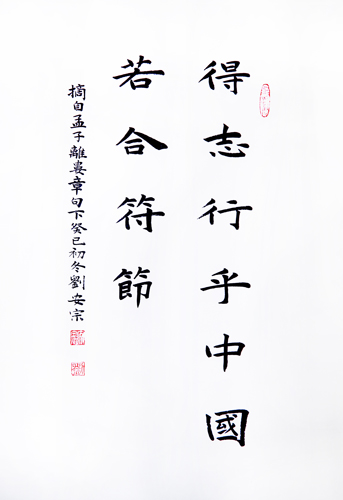 得志行乎中國
若合符節
摘自孟子離婁章句下癸巳初冬劉安宗